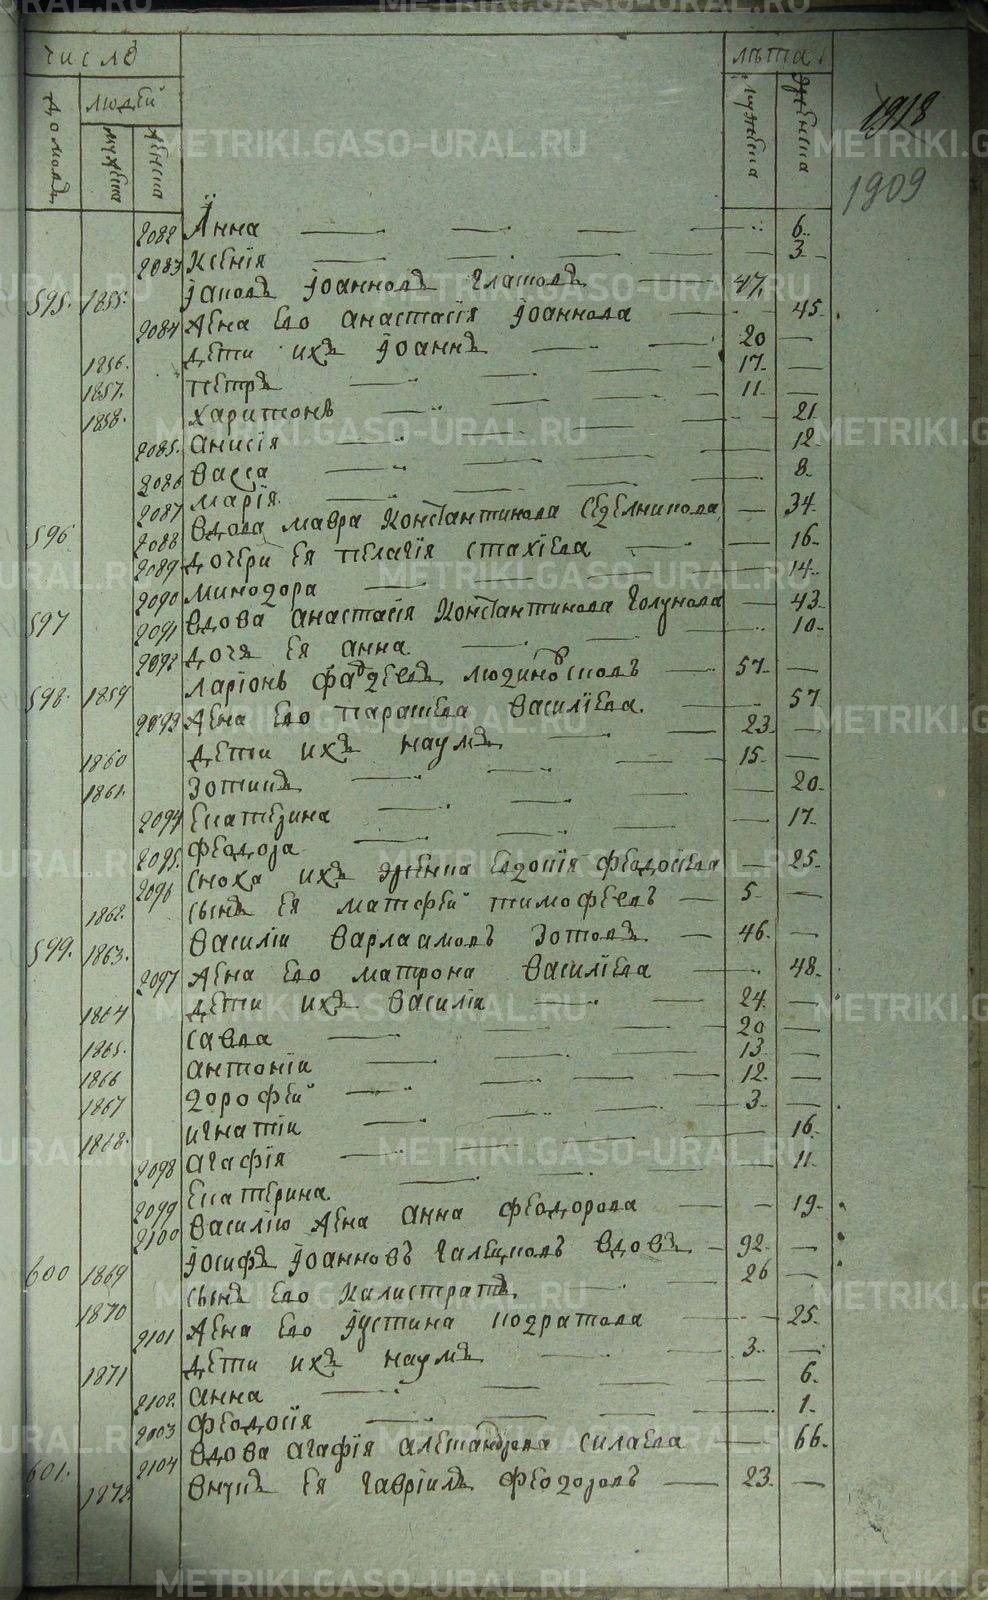 число
лѣта
домовъ
людей
мужеска
женска
мужеска
женска
1918
1909
2082 Анна 6
2083 Ксенія 3
595. 1855. Іаковъ Іоанновъ Глатовъ 47.
2084 Жена его Анастасія Іоаннова 45
1856. дети ихъ Іоаннъ 20
1857. Петръ 17
1858. Харитонъ 11
2085. Анисія 21
2086 Васса 12
2087 Марія 8
596 2088 Вдова Мавра Константинова Седелникова 34
2089 Дочери ея Пелагія Стахіева 16
2090 Минодора 14
597 2091 Вдова Анастасія Константинова Голунова 43
2092 Дочя ея Анна 10
598. 1859 Ларіонъ Фадѣевъ Людиновсковъ 57
2093 Жена его Парасиева Василіева 57
1860 дети ихъ Наумъ 23
1861. Зотикъ 15
2094 Екатерина 20
2095. Феодора 17
2096 Сноха ихъ женка Евдокія Федосіева 25
1862. сынъ ея Матфей Тимофеевъ 5
599. 1863. Василіи Варлаамовъ Зотовъ 46
2097 Жена его Матрона Василіева 48
1864 дети ихъ Василіи 24
1865. Савва 20
1866 Антоніи 13
1867 Дорофей 12
1868. Игнатіи 3
2098 Агафія 16
2099 Екатерина 11
2100 Василію жена Анна Феодорова 19
600 1869 Іосифъ Іоанновъ Галецковъ вдовъ 92
1870 сынъ его Калистратъ 26
2101 Жена его Іустина Кодратова 25
1871 дети ихъ Наумъ 3
2102. Анна 6
2003 Феодосія 1
601. 2104 Вдова Агафія Алеѯандрова Силаева 66
1872. Внукъ ея Гавріилъ Феодоровъ 23